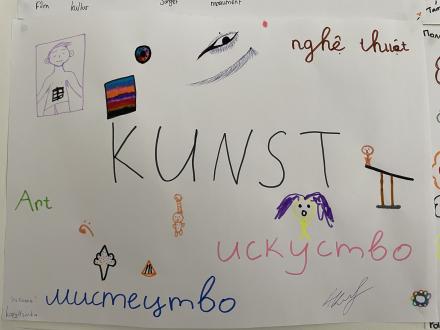 Film kultur Sänger monument
nghệ thuật
KUNST
Art
искуство
мистецтво